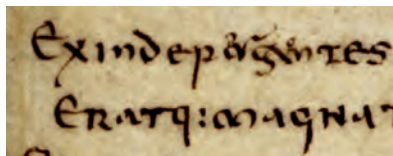 Exindeperagentes
Eratq:magna